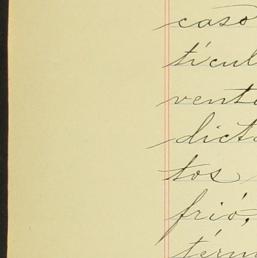 caso
tícul
vent
dict
tos
frió,
térm